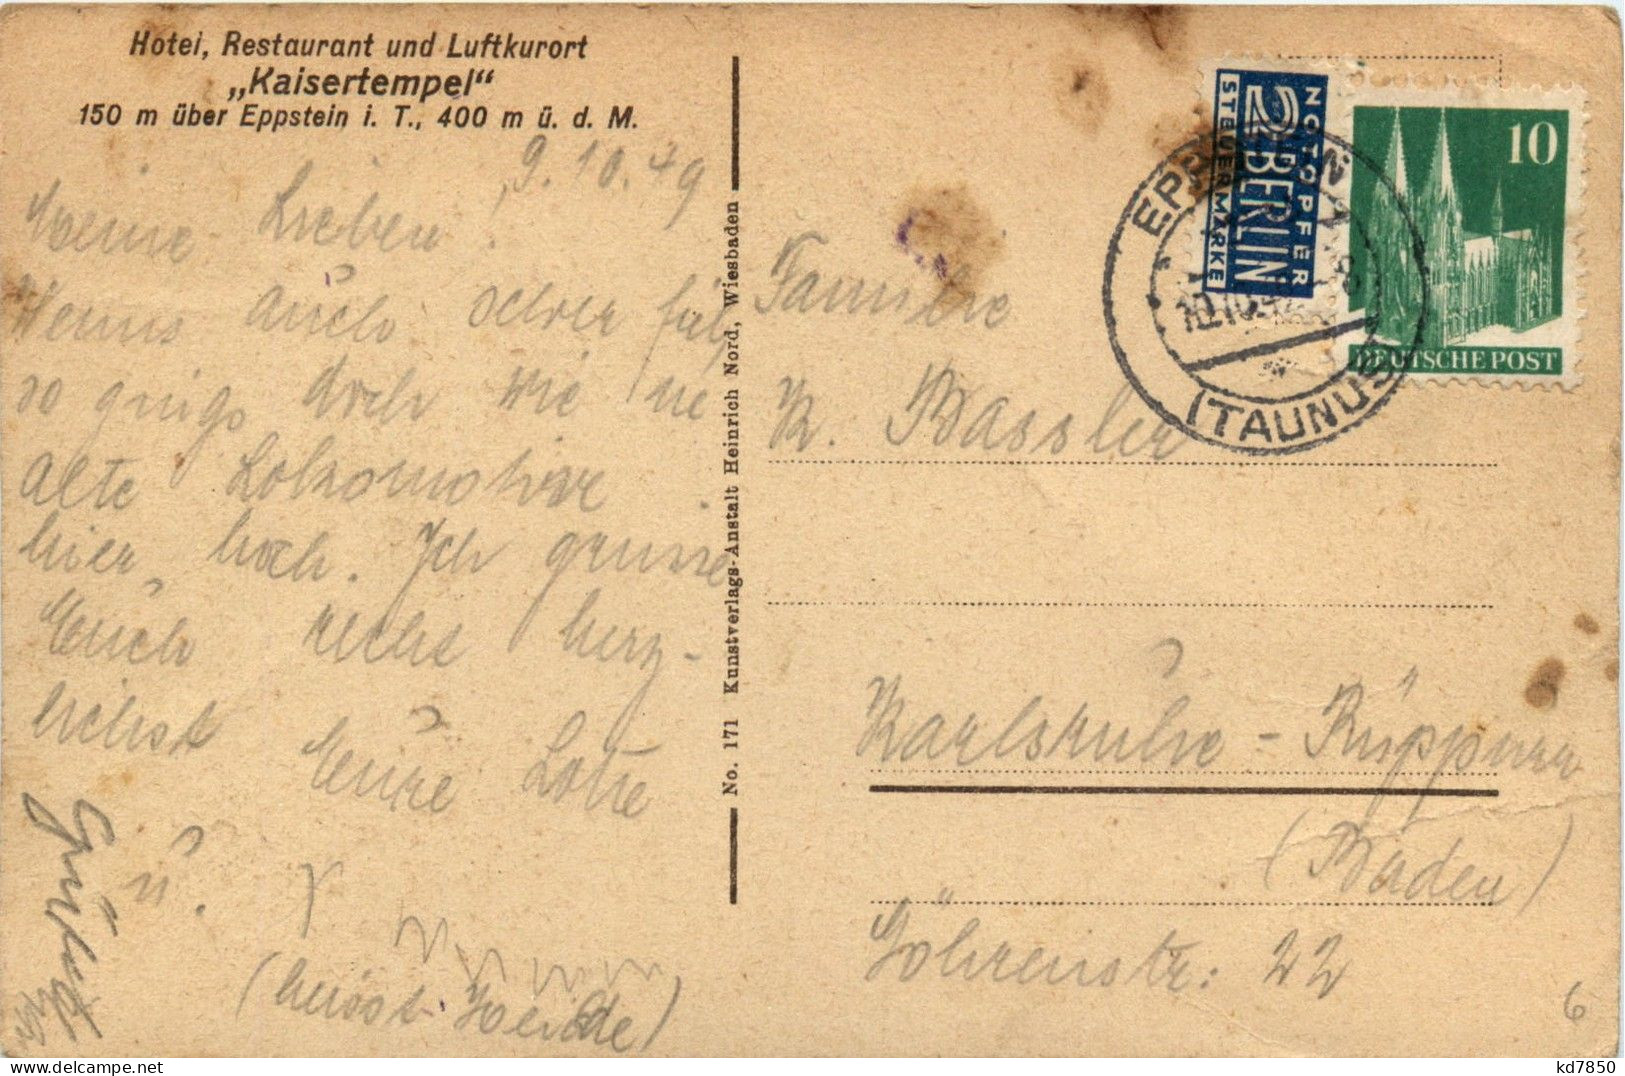 Hotel, Restaurant und Luftkurort
„Kaisertempel“
150 m über Eppstein i. T., 400 m ü. d. M.
9.10.49
Meine Lieben!
Wenns auch schwer fiel
so gings doch wie ne
alte Lokomotive
hier hoch. Ich grüsse
Euch recht herz-
lichst
Eure Lotte
u.
(heisst Heide)
No. 171 Kunstverlags-Anstalt Heinrich Nord, Wiesbaden
NOTOPFER
2 BERLIN
STEUERMARKE
10
DEUTSCHE POST
EPPSTEIN
10.10.49 -8
(TAUNUS)
Familie
K. Bassler
Karlsruhe - Rüppurr
(Baden)
Göhrenstr: 22
6
kd7850